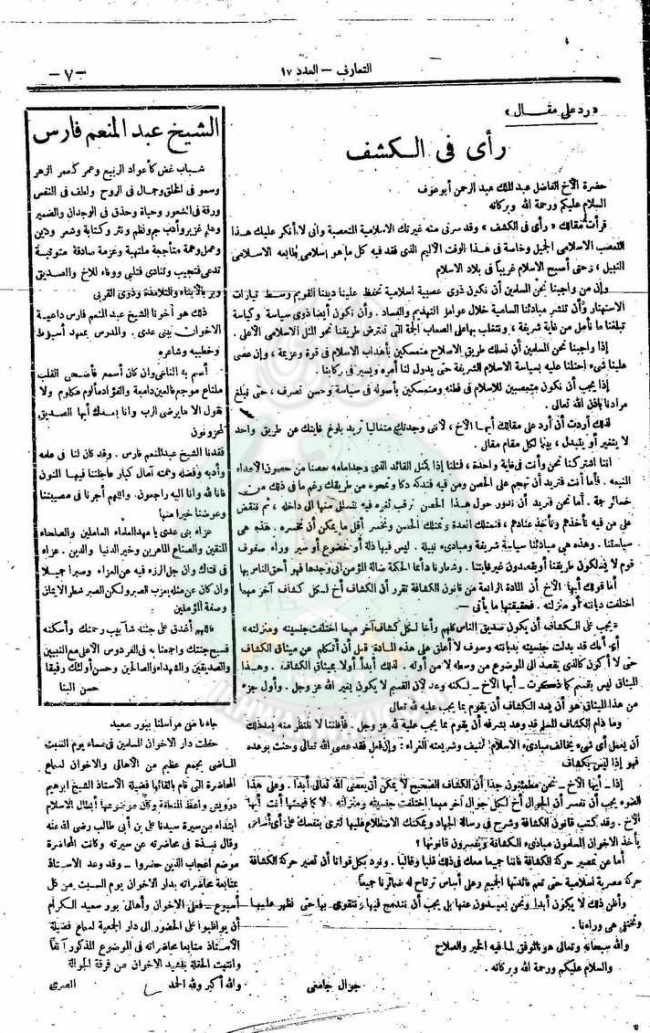 التعارف — العدد ١٧
—٧—
«رد على مقال»
رأى فى الكشف
حضرة الأخ الفاضل عبد الملك عبد الرحمن أبو عوف
السلام عليكم ورحمة الله وبركاته
قرأت مقالك «رأى فى الكشف» وقد سرنى منه غيرتك الاسلامية المتعصبة وانى لا أنكر عليك هذا
التعصب الاسلامى الجميل وخاصة فى هذا الوقت الأليم الذى فقد فيه كل ما هو إسلامى طابعه الاسلامى
النبيل ، وحتى أصبح الاسلام غريباً فى بلاد الاسلام
وإن من واجبنا نحن المسلمين أن نكون ذوى عصبية اسلامية تحفظ علينا ديننا القويم وسط تيارات
الاستهتار وأن تنشر مبادئنا السامية خلال عوامل التهديم والفساد . وأن نكون أيضا ذوى سياسة وكياسة
تبلغنا ما نأمل من غاية شريفة ، ونتغلب بها على الصعاب الجمة التى تعترض طريقنا نحو المثل الاسلامى الأعلى .
إذا واجبنا نحن المسلمين أن نسلك طريق الاصلاح متمسكين بأهداب الاسلام فى قوة وعزيمة ، وإن عصى
علينا شىء احتلنا عليه بسياسة الاسلام الشريفة حتى يدول لنا أمره ويسير فى ركابنا .
إذا يجب أن نكون متعصبين للاسلام فى فطنة ومتمسكين بأصوله فى سياسة وحسن تصرف ، حتى نبلغ
مرادنا باذن الله تعالى .
لذلك أردت أن أرد على مقالك أيها الأخ ، لأنى وجدتك متفانيا تريد بلوغ غايتك عن طريق واحد
لا يتغير أو يتبدل ، بينما لكل مقام مقال .
اننا اشتركنا نحن وأنت فى غاية واحدة ، فمثلنا إذا يمثل القائد الذى وجد أمامه حصنا من حصون الأعداء
المنيعة . فأما أنت فتريد أن تهجم على الحصن ومن فيه فتدكه دكا وتمحوه من طريقك رغم ما فى ذلك من
خسائر جمة . أما نحن فنريد أن ندور حول هذا الحصن نرقب ثغره فيه نتسلل منها الى داخله ، ثم ننقض
على من فيه فنأخذهم ونأخذ عتادهم ، فنمتلك العدة ونمتلك الحصن ونخسر أقل ما يمكن أن نخسره . هذه هى
سياستنا . وهذه هى مبادئنا سياسة شريفة ومبادىء نبيلة . ليس فيها ذلة أو خضوع أو سير وراء صفوف
قوم لا يسلكون طريقنا أو يقصدون غير غايتنا . وشعارنا دائما الحكمة ضالة المؤمن أنى وجدها فهو أحق الناس بها
أما قولك أيها الأخ أن المادة الرابعة من قانون الكشافة تقرر أن الكشاف أخ لكل كشاف آخر مهما
اختلفت ديانته أو منزلته . فحقيقتها ما يأتى —
«يجب على الكشاف أن يكون صديق الناس كلهم وأخا لكل كشاف آخر مهما اختلفت جنسيته ومنزلته»
أى أنك قد بدلت جنسيته بديانته وسوف لا أعلق على هذه المادة قبل أن أتكلم عن ميثاق الكشاف
حتى لا أكون كالذى يقصد الى الموضوع من وسطه لا من أوله . لذلك أبدأ أولا بميثاق الكشافة . وهذا
الميثاق ليس بقسم كما ذكرت — أيها الأخ — لكنه وعد لأن القسم لا يكون بغير الله عز وجل . وأول جزء
من هذا الميثاق هو أن يعد الكشاف أن يقوم بما يجب عليه لله تعالى
وما دام الكشاف المسلم قد وعد بشرفه أن يقوم بما يجب عليه لله عز وجل . فأظننا لا ننتظر منه بعد ذلك
أن يعمل أى شىء يخالف مبادىء الاسلام الحنيف وشريعته الغراء : وإن فعل فقد عصى الله تعالى وحنث بوعده
فهو إذا ليس بكشاف
إذا — أيها الأخ — نحن مطمئنون جدا أن الكشاف الصحيح لا يمكن أن يعصى الله تعالى أبدا . وعلى هذا
الضوء يجب أن نفسر أن الجوال أخ لكل جوال آخر مهما اختلفت جنسيته ومنزلته . لا كما فهمتها أنت أيها
الأخ . وقد كتب قانون الكشافة وشرح فى رسالة الجهاد ويمكنك الاطلاع عليها لترى بنفسك على أى أساس
يأخذ الاخوان المسلمون مبادىء الكشافة ويفسرون قانونها ؟
أما عن تمصير حركة الكشافة فاننا جميعا معك فى ذلك قلبا وقالبا . ونود بكل قوانا أن تصير حركة الكشافة
حركة مصرية اسلامية حتى تعم فائدتها الجميع وعلى أساس ترتاح له ضمائرنا جميعا
وأظن ذلك لا يكون أبدا ونحن بعيدون عنها بل يجب أن نندمج فيها ونتقوى بها حتى نظهر عليها
وتختفى هى وراءنا .
والله سبحانه وتعالى هو الموفق لما فيه الخير والصلاح
والسلام عليكم ورحمة الله وبركاته .
جوال جامعى
الشيخ عبد المنعم فارس
شباب غض كأعواد الربيع وعمر كعمر الزهر
وسمو فى الخلق وجمال فى الروح ولطف فى النفس
ورقة فى الشعور وحياة وحذق فى الوجدان والضمير
وعلم غزير وأدب جم ونظم ونثر وكتابة وشعر ودين
وعمل وهمة متأججة ملتهبة وعزمة صادقة متوثبة
تدعى فتجيب وتنادى فتلبى ووفاء للاخ والصديق
وبر بالأبناء والتلامذة وذوى القربى
ذلك هو أخونا الشيخ عبد المنعم فارس داعية
الاخوان ببنى عدى . والمدرس بمعهد أسيوط
وخطيبه وشاعره
أسم به الناعى وان كان أسمع فأضحى القلب
ملتاع موجع فالعين دامية والفؤاد مألوم مكلوم ولا
نقول الا ما يرضى الرب وانا لبعدك أيها الصديق
لمحزونون
فقدنا الشيخ عبد المنعم فارس . وقد كان لنا فى علمه
وأدبه وفضله وهمته آمال كبار عاجلتنا فيها المنون
فانا لله وانا اليه راجعون . واللهم أجرنا فى مصيبتنا
وعوضنا خيرا منها
عزاء بنى عدى يا مهد العلماء العاملين والصلحاء
المتقين والصناع الماهرين وخير الدنيا والدين . عزاء
فى فتاك وان جل الرزء فيه عن العزاء وصبرا جميلا
وان كان عن مثله يعزب الصبر ولكن الصبر شطر الايمان
وصفة المؤملين
فاللهم أغدق على جدثه شآبيب رحمتك وأسكنه
فسيح جنتك واجمعنا به فى الفردوس الأعلى مع النبيين
والصديقين والشهداء والصالحين وحسن أولئك رفيقا
حسن البنا
جاءنا من مراسلنا ببور سعيد
حفلت دار الاخوان المسلمين فى مساء يوم السبت
الماضى بجمع عظيم من الأهالى والاخوان لسماع
المحاضرة التى قام بالقائها فضيلة الاستاذ الشيخ ابرهيم
درويش واعظ المنطقة وكان موضوعها أبطال الاسلام
ابتداء من سيرة سيدنا على بن أبى طالب رضى الله عنه
وقال نبذة فى محاضرته عن سيرته وكانت المحاضرة
موضع اعجاب الذين حضروا — وقد وعد الاستاذ
بمتابعة محاضراته بدار الاخوان يوم السبت من كل
أسبوع — فعلى الاخوان وأهالى بور سعيد الكرام
أن يواظبوا على الحضور الى دار الجمعية لسماع فضيلة
الأستاذ متابعا محاضراته فى الموضوع المذكور آنفا
وانتهت الحفلة بنشيد الاخوان من فرقة الجوالة
والله أكبر ولله الحمد المصرى